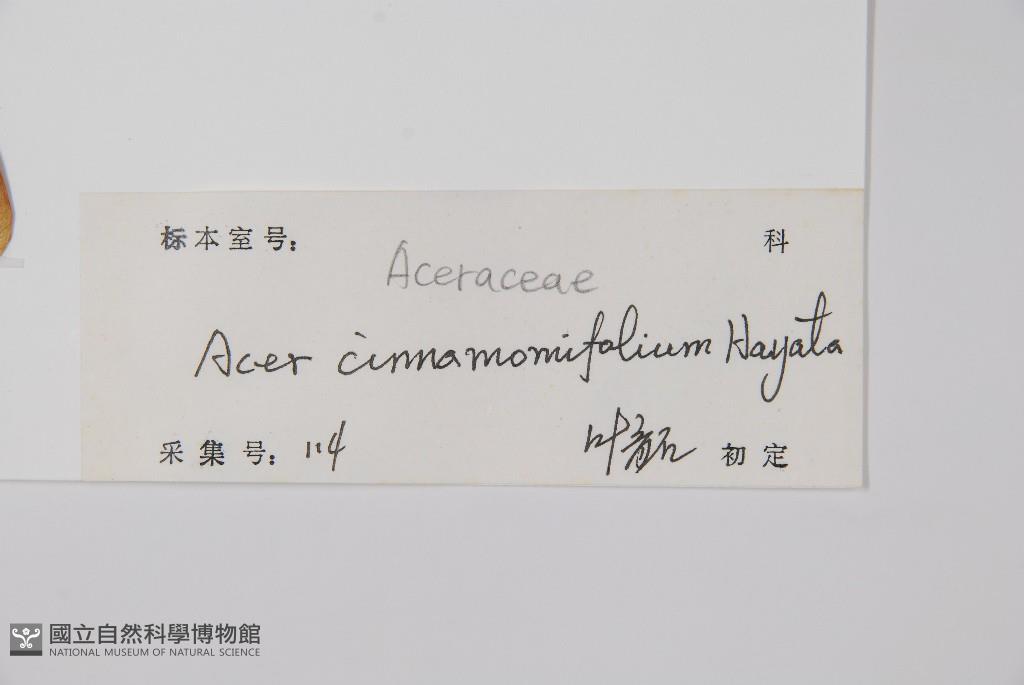 标本室号: 科
Aceraceae
Acer cinnamomifolium Hayata
采集号: 114 叶 初定
國立自然科學博物館
NATIONAL MUSEUM OF NATURAL SCIENCE